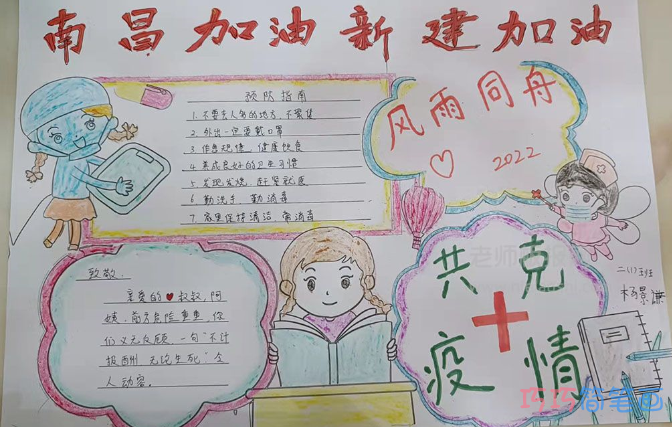 南昌加油新建加油
预防指南
1. 不要去人多的地方,不聚集
2. 外出一定要戴口罩
3. 作息规律 健康饮食
4. 养成良好的卫生习惯
5. 发现发烧,赶紧就医
6 勤洗手 勤消毒
7. 家里保持清洁 常消毒
风雨同舟
2022
致敬:
亲爱的❤叔叔,阿
姨,前方危险重重,你
们义无反顾,一句“不计
报酬 无论生死”令
人动容。
共克
疫情
二(1)班
巧巧简笔画